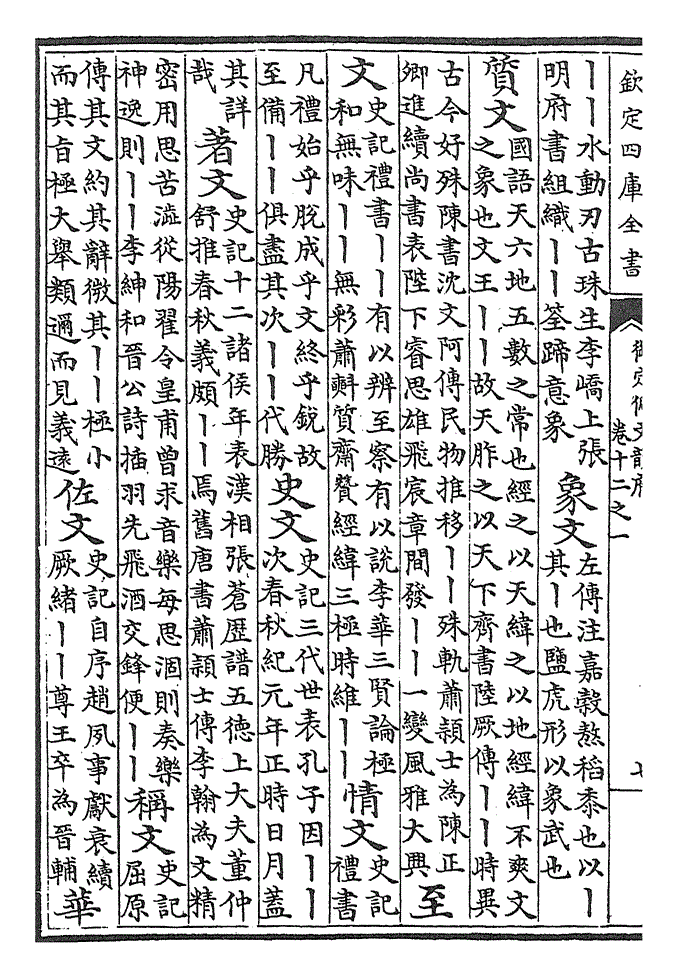 欽定四庫全書
御定佩文韻府
卷十二之一
七
丨丨水動刃古珠生李嶠上張
明府書組織丨丨筌蹄意象
象文
左傳注嘉穀熬稻黍也以丨
其丨也鹽虎形以象武也
質文
國語天六地五數之常也經之以天緯之以地經緯不爽文
之象也文王丨丨故天胙之以天下齊書陸厥傳丨丨時異
古今好殊陳書沈文阿傳民物推移丨丨殊軌蕭穎士為陳正
卿進續尚書表陛下睿思雄飛宸章間發丨丨一變風雅大興
至
文
史記禮書丨丨有以辨至察有以說李華三賢論極
和無味丨丨無彩蕭㪺質齋贊經緯三極時維丨丨
情文
史記
禮書
凡禮始乎脫成乎文終乎銳故
至備丨丨俱盡其次丨丨代勝
史文
史記三代世表孔子因丨丨
次春秋紀元年正時日月蓋
其詳
哉
著文
史記十二諸侯年表漢相張蒼歷譜五德上大夫董仲
舒推春秋義頗丨丨焉舊唐書蕭穎士傳李翰為文精
密用思苦澁從陽翟令皇甫曾求音樂每思涸則奏樂
神逸則丨丨李紳和晉公詩插羽先飛酒交鋒便丨丨
稱文
史記
屈原
傳其文約其辭微其丨丨極小
而其旨極大舉類邇而見義遠
佐文
史記自序趙夙事獻衰續
厥緒丨丨尊王卒為晉輔
華